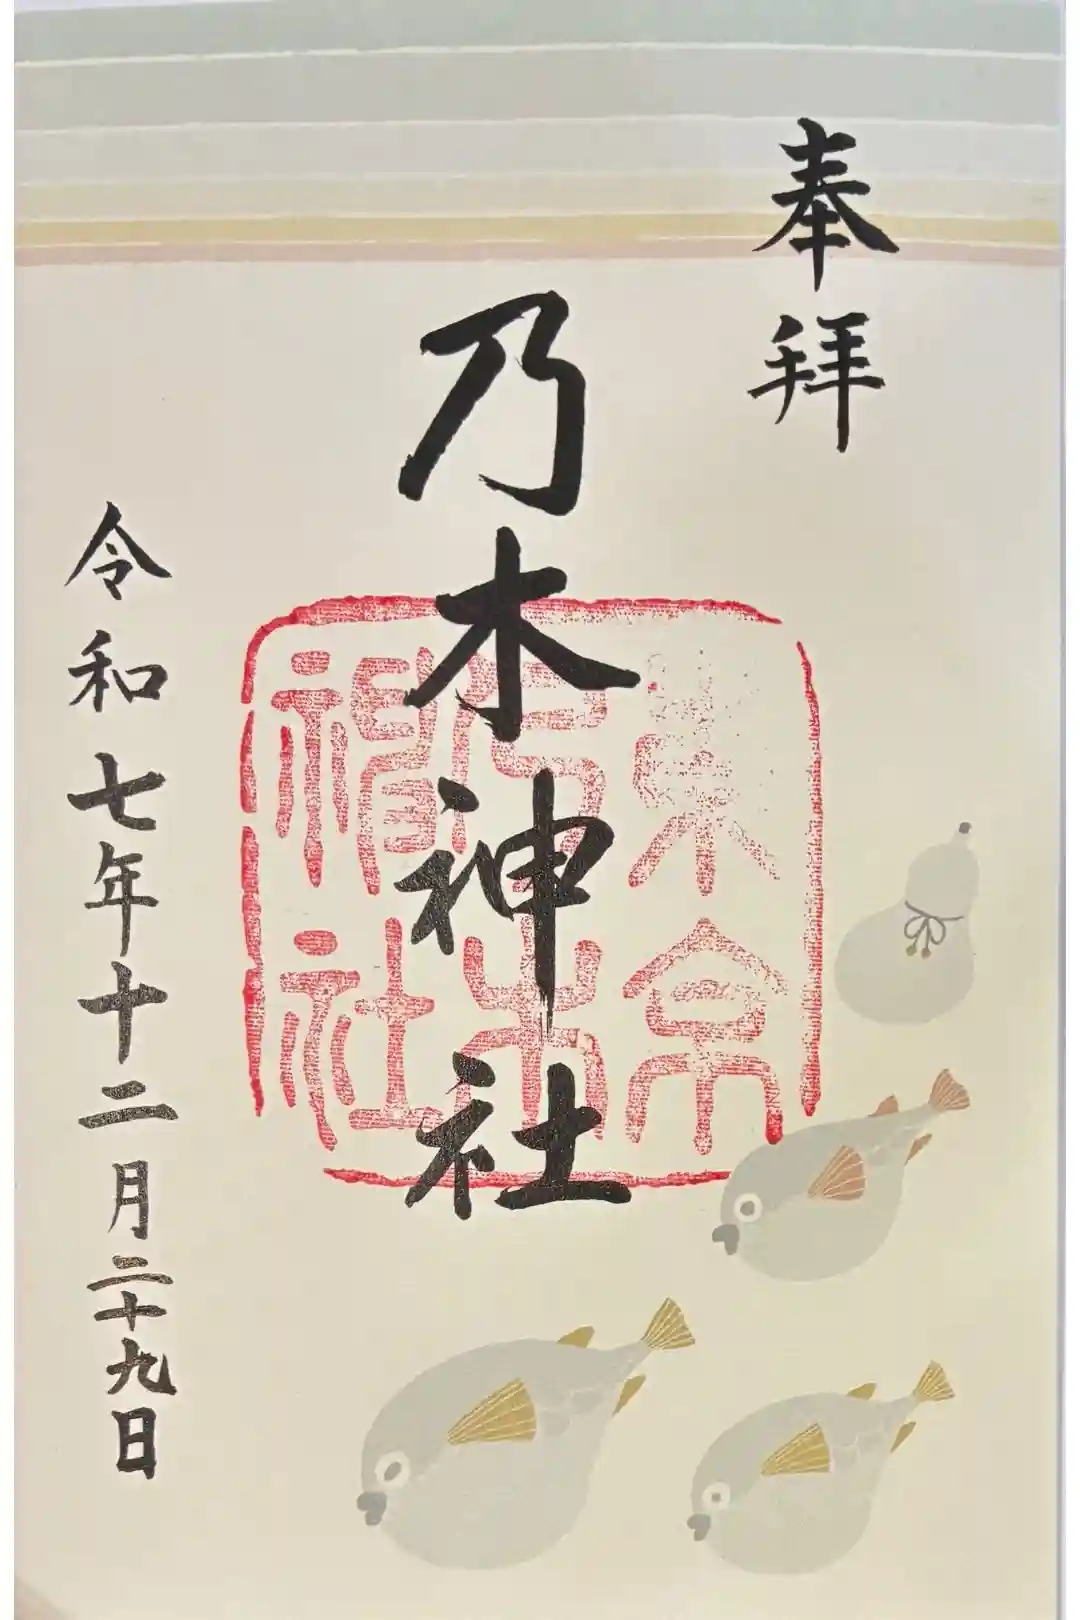 奉拝
乃木神社
東京
乃木
神社
令和七年十二月二十九日